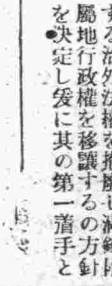 する治外法權を撤廢し滿鐵附
屬地行政權を移讓するの方針
を決定し爰に其の第一着手と